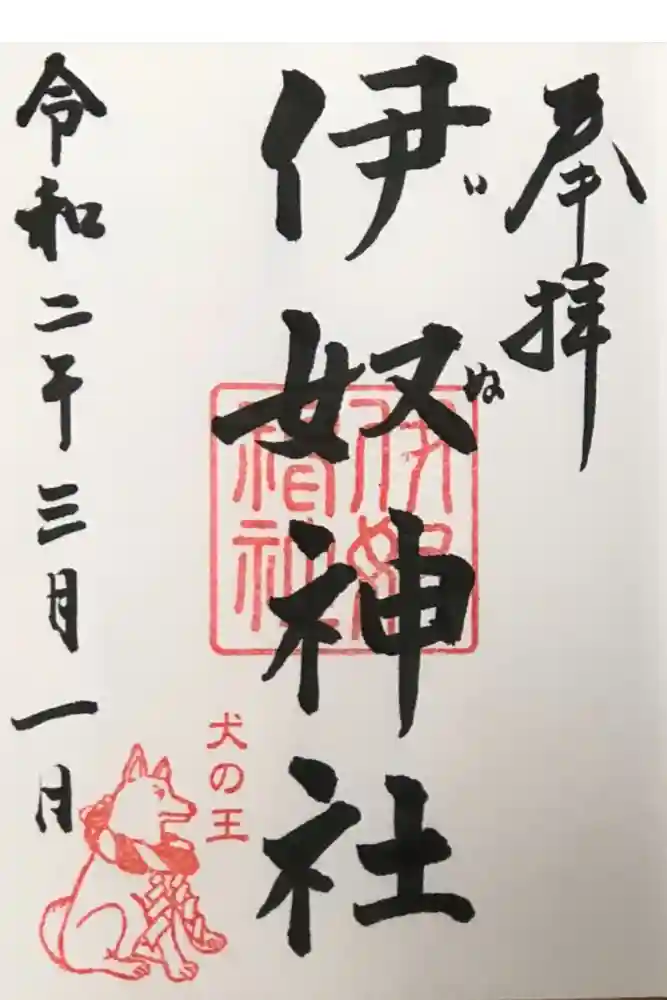 奉拝
伊奴神社
いぬ
犬の王
令和二年三月一日